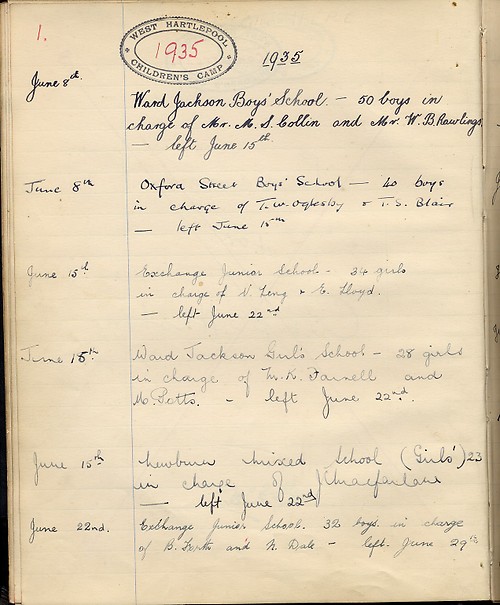 1.
WEST HARTLEPOOL
1935
CHILDREN'S CAMP
1935
June 8th.
Ward Jackson Boys' School. — 50 boys in
charge of Mr. M. S. Collin and Mr. W. B Rawlings.
— left June 15th.
June 8th
Oxford Street Boys' School — 40 boys
in charge of T. W. Oglesby & T. S. Blair
— left June 15th
June 15th
Exchange Junior School - 34 girls
in charge of V. Leng & E. Lloyd.
— left June 22nd
June 15th
Ward Jackson Girls School — 28 girls
in charge of M. K. Farnell and
M. Potts. - left June 22nd.
June 15th
Newburn Mixed School (Girls') 23
in charge of J Macfarlane
— left June 22nd
June 22nd.
Exchange Junior School. 32 boys. in charge
of B. Forth and N. Dale — left June 29th